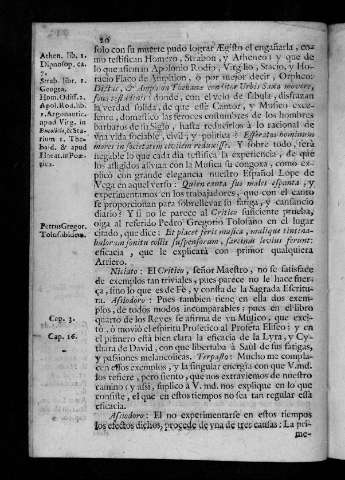 20
solo con su muerte pudo lograr Ægisto el engañarla, co-
mo testifican Homero, Strabon, y Atheneo: y que de
lo que asientan Apolonio Rodio, Virgilio, Stacio, y Ho-
racio Flaco de Amphion, ò por mejor decir, Orpheo:
Dictus, & Amphion Thebanæ conditor Urbis Saxa movere,
sono testudinis: donde, con el velo de fabula, disfrazan
la verdad solida, de que este Cantor, y Musico exce-
lente, domestico las feroces costumbres de los hombres
barbaros de su Siglo, hasta reducirlos à lo racional de
una vida sociable, civil, y politica:
mores in societatem
Y sobre todo, serà
inegable lo que cada dia testifica la experiencia, de que
los afligidos alivian con la Musica su congoxa, como ex-
plicò con grande elegancia nuestro Español Lope de
Vega en aquel verso: Quien canta sus males espanta, y
experimentamos en los trabajadores, que con el canto
se proporcionan para sobrellevar su fatiga, y cansancio
diario? Y si no le parece al Critico suficiente prueba,
oiga al referido Pedro Gregorio Tolosano en el lugar
citado, que dice: Et placet feris musica, mulique tintina-
bulorum sonitu collis suspensorum, sarcinam levius ferunt:
eficacia, que le explicarà con primor qualquiera
Arriero.
Niciato: El Critico, señor Maestro, no se satisface
de exemplos tan triviales, pues parece no le hace fuer-
ça, sino lo que es de Fè, y consta de la Sagrada Escritu-
ra. Asisodoro: Pues tambien tiene en ella dos exem-
plos, de todos modos incomparables; pues en el libro
quarto de los Reyes se afirma de un Musico, que exci-
tò, ò moviò el espiritu Profetico al Profeta Eliseo; y en
el primero està bien clara la eficacia de la Lyra, y Cy-
thara de David, con que libertaba à Saùl de sus fatigas,
y passiones melancolicas. Terpasto: Mucho me compla-
cen essos exemplos, y la singular energia con que V.md.
los refiere, pero siento, que nos extraviemos de nuestro
camino; y assi, suplico à V. md. nos explique en lo que
consiste, el que en estos tiempos no sea tan regular essa
eficacia.
Asisodoro: El no experimentarse en estos tiempos
los efectos dichos, procede de una de tres causas: La pri-
me-
Athen. lib. 1.
Dipnosop. ca.
7.
Strab. libr. 1.
Geogra.
Hom. Odiss. 2.
Apol. Rod. lib.
1. Argonautic.
apud Virg. in
Bucolicis, & Sta-
tium 1. Theb
baid. & apud
Horat. in Poe-
tica.
Petrus Gregor.
Tolosa
Cap. 3.
Cap. 16.